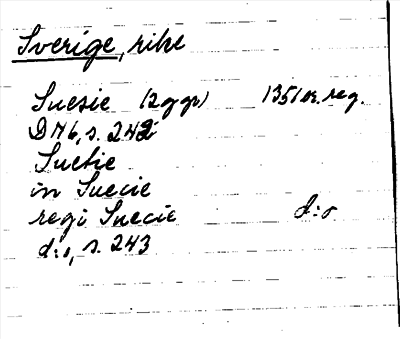 Sverige, rike
Suesie (2 ggr) 1351 or. reg.
DN 6, s. 242
Suetie
in Suecie
regi Suecie d:o
d:o, s. 243